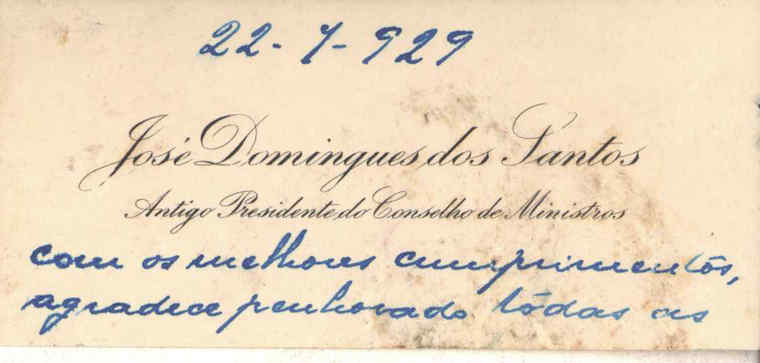 22-7-929
José Domingues dos Santos
Antigo Presidente do Conselho de Ministros
com os melhores cumprimentos,
agradece penhorado tôdas as